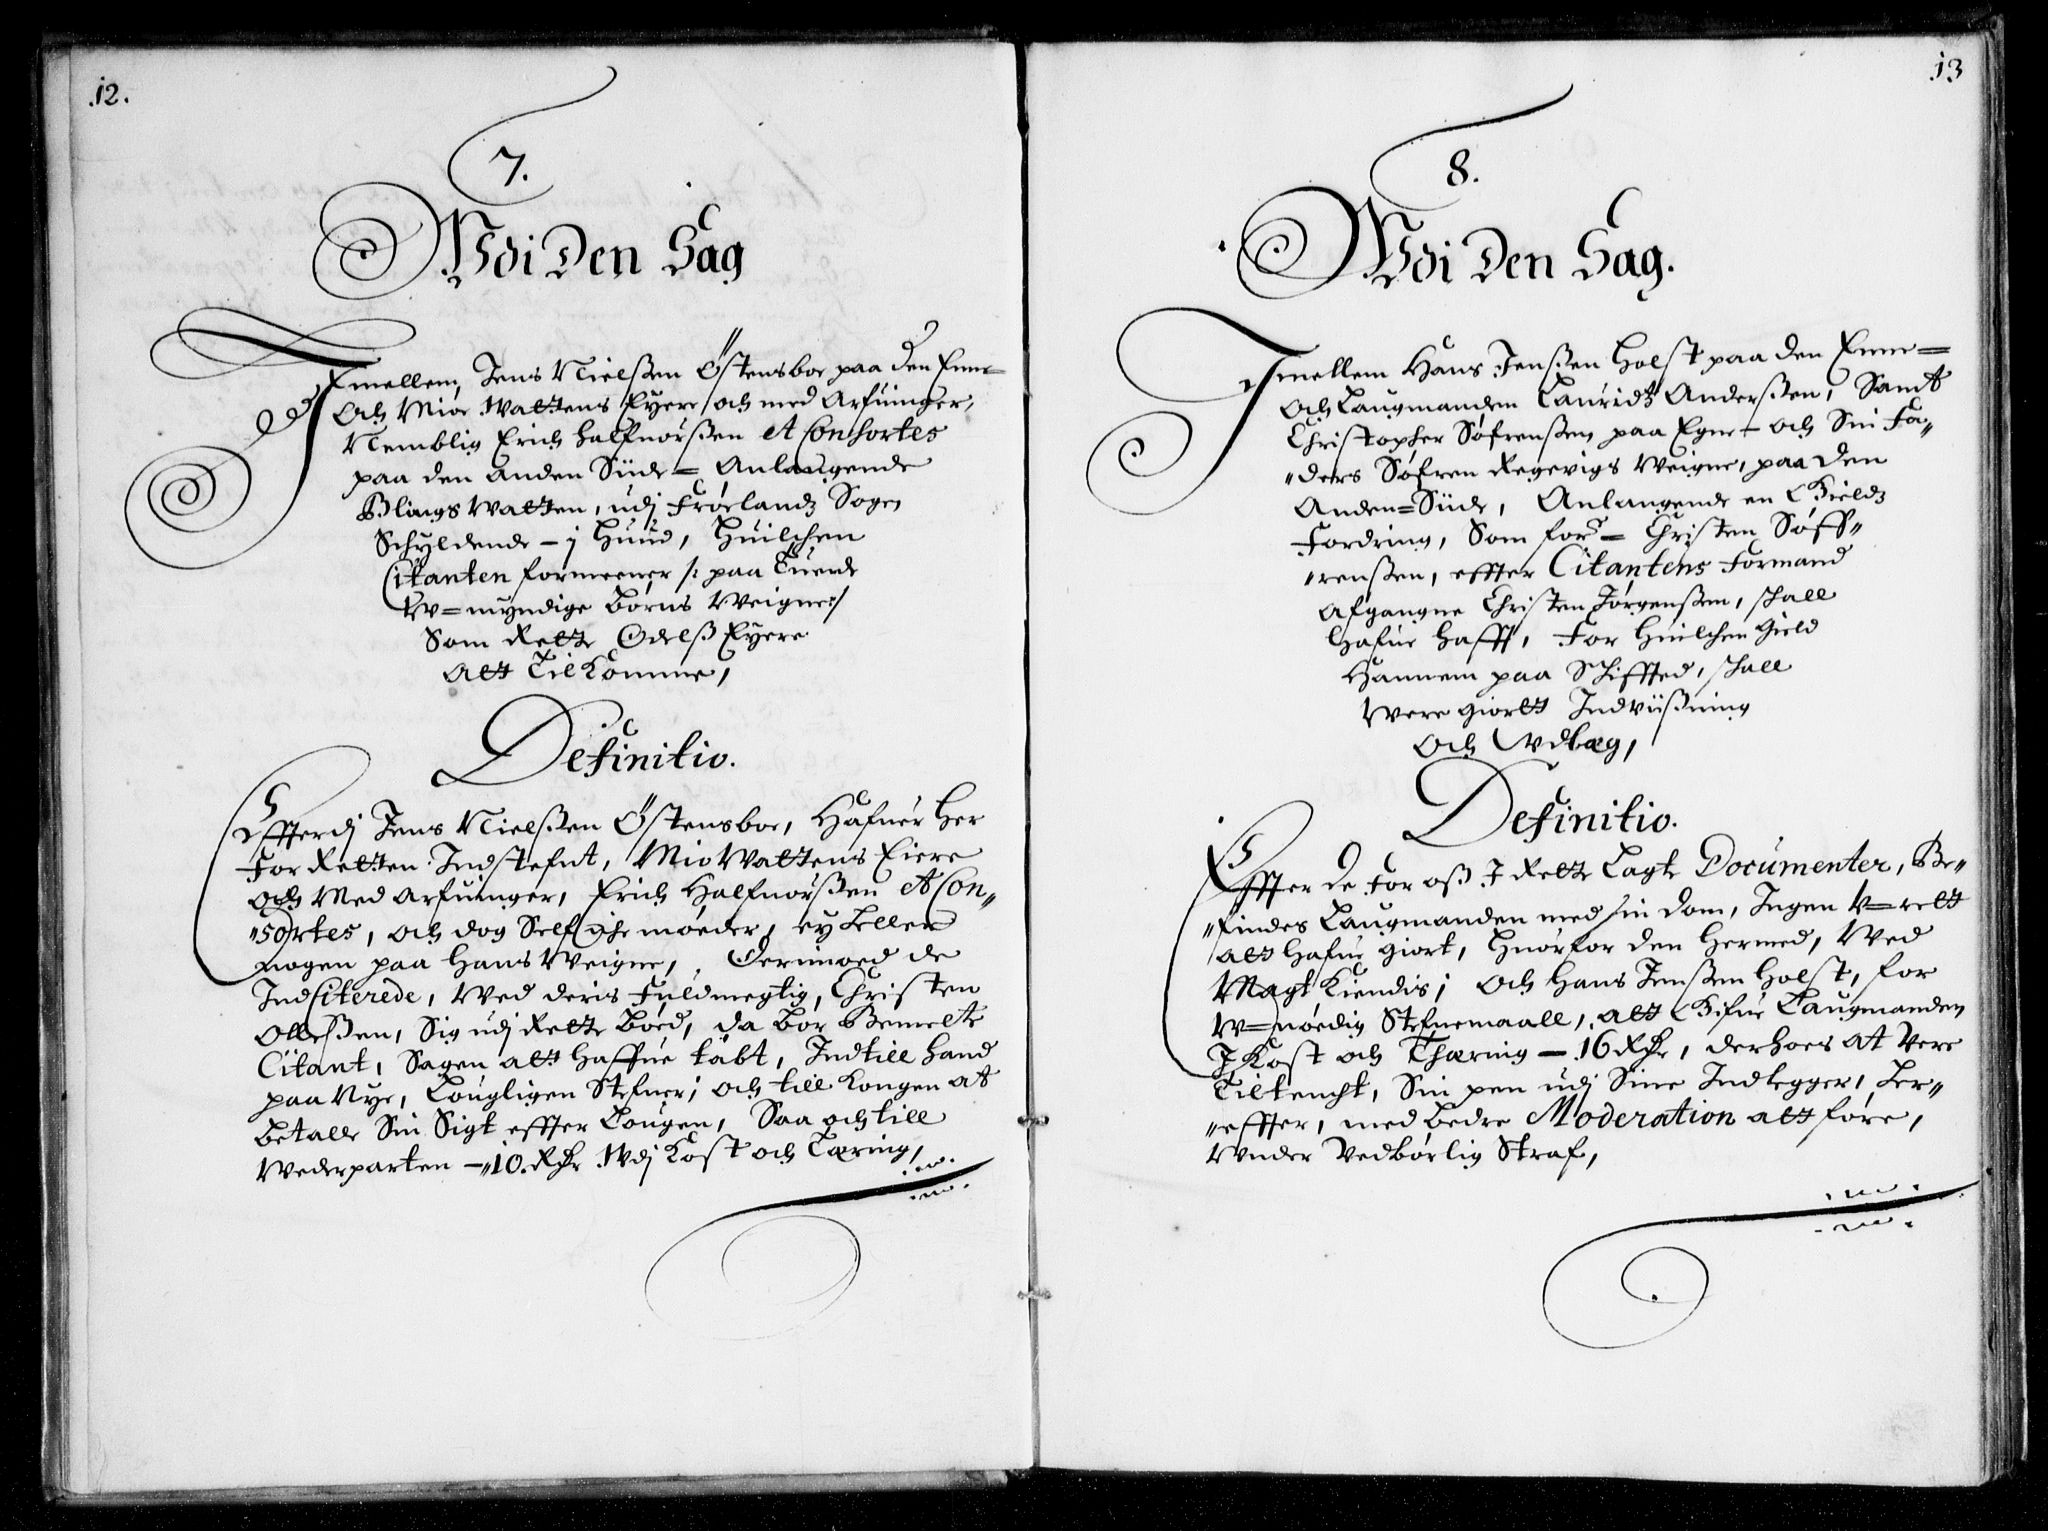 12.
7.
Wdi Den Sag
Imellem, Jens Nielßen Östensboe paa den Enne=
Och Mioe Wattens Eyere och med Arfuinger,
Nemblig Erich Halfuorßen et Consortes
paa den Anden Siide = Anlangende
Blings Watten, udj Frølandz Sogen
Schyldende – j Huud, Huilchen
Citanten formeener /: paa Tuende
W=myndige Børns Weigne :/
Som Rette Odelß Eyere
Att Tilkomme,
Definitio.
Effterdj Jens Nielßen Östensboe, Hafuer her
For Retten Indstefnt, Mio Wattens Eiere
Och Med Arfuinger, Erich Halfuorßen et Con„
„sortes, och dog Self iche møeder, ey heller
nogen paa Hans Weigne, Offerimoed de
Indciterede, Med deris Fuldmegtig, Christen
Olleßen, Sig udj Rette Bøed, da bør Bemelte
Citant, Sagen att haffue tabt, Indtill hand
paa Nye, Lougligen Stefner; och till Kongen at
betalle Sin Sigt effter Lougen, Saa och till
Wederparten – 10. Rdr Wdj Kost och Tæring,
13
8.
Wdi Den Sag.
Imellem Hans Jenßen Holst paa den Enne=
Och Laugmanden Lauridz Anderßen, Samt
Christopher Søfrenßen paa Egne – och Sin Fa„
„ders Søfren Regevigs Weigne, paa den
Anden=Siide, Anlangende en Gieldz
Fordring, Som for= Christen Søff„
„renßen, effter Citantens Formand
Afgangne Christen Jørgenßen, schall
Hafue hafft, For Huilchen Gield
Hannem paa Schifftet, schall
Were giortt Indviißning
Och Wdlæg,
Definitio.
Effter de For oß I Rette Lagte Documenter, Be„
„findes Laugmanden med sin dom, Ingen V=rett
att hafue giort, Huorfor den hermed, Ved
Magt Kiendis; Och Hans Jenßen Holst, for
W=nøedig Stefnemaall, att Gifue Laugmanden
I Kost och Thæring – 16 Rdr, derhoes at Vere
Tiltencht, Sin pen udj Sine Indlegger, her„
„effter, med bedre Moderation att føre,
Wnder Vedbørlig Straf,